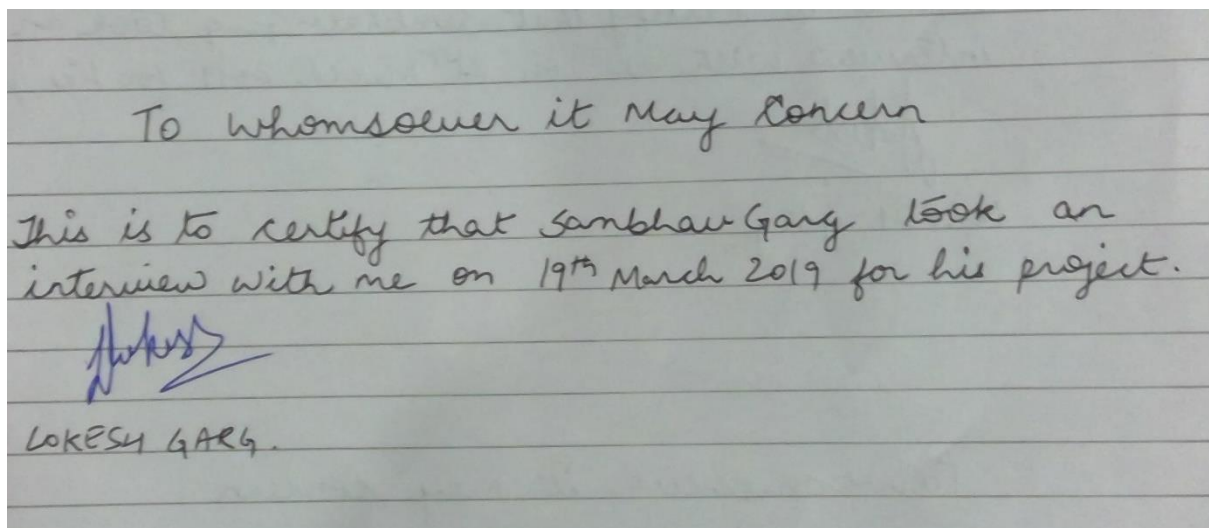 To Whomsoever it May Concern
This is to certify that Sambhav Garg took an
interview with me on 19th March 2019 for his project.
Lokesh
LOKESH GARG.